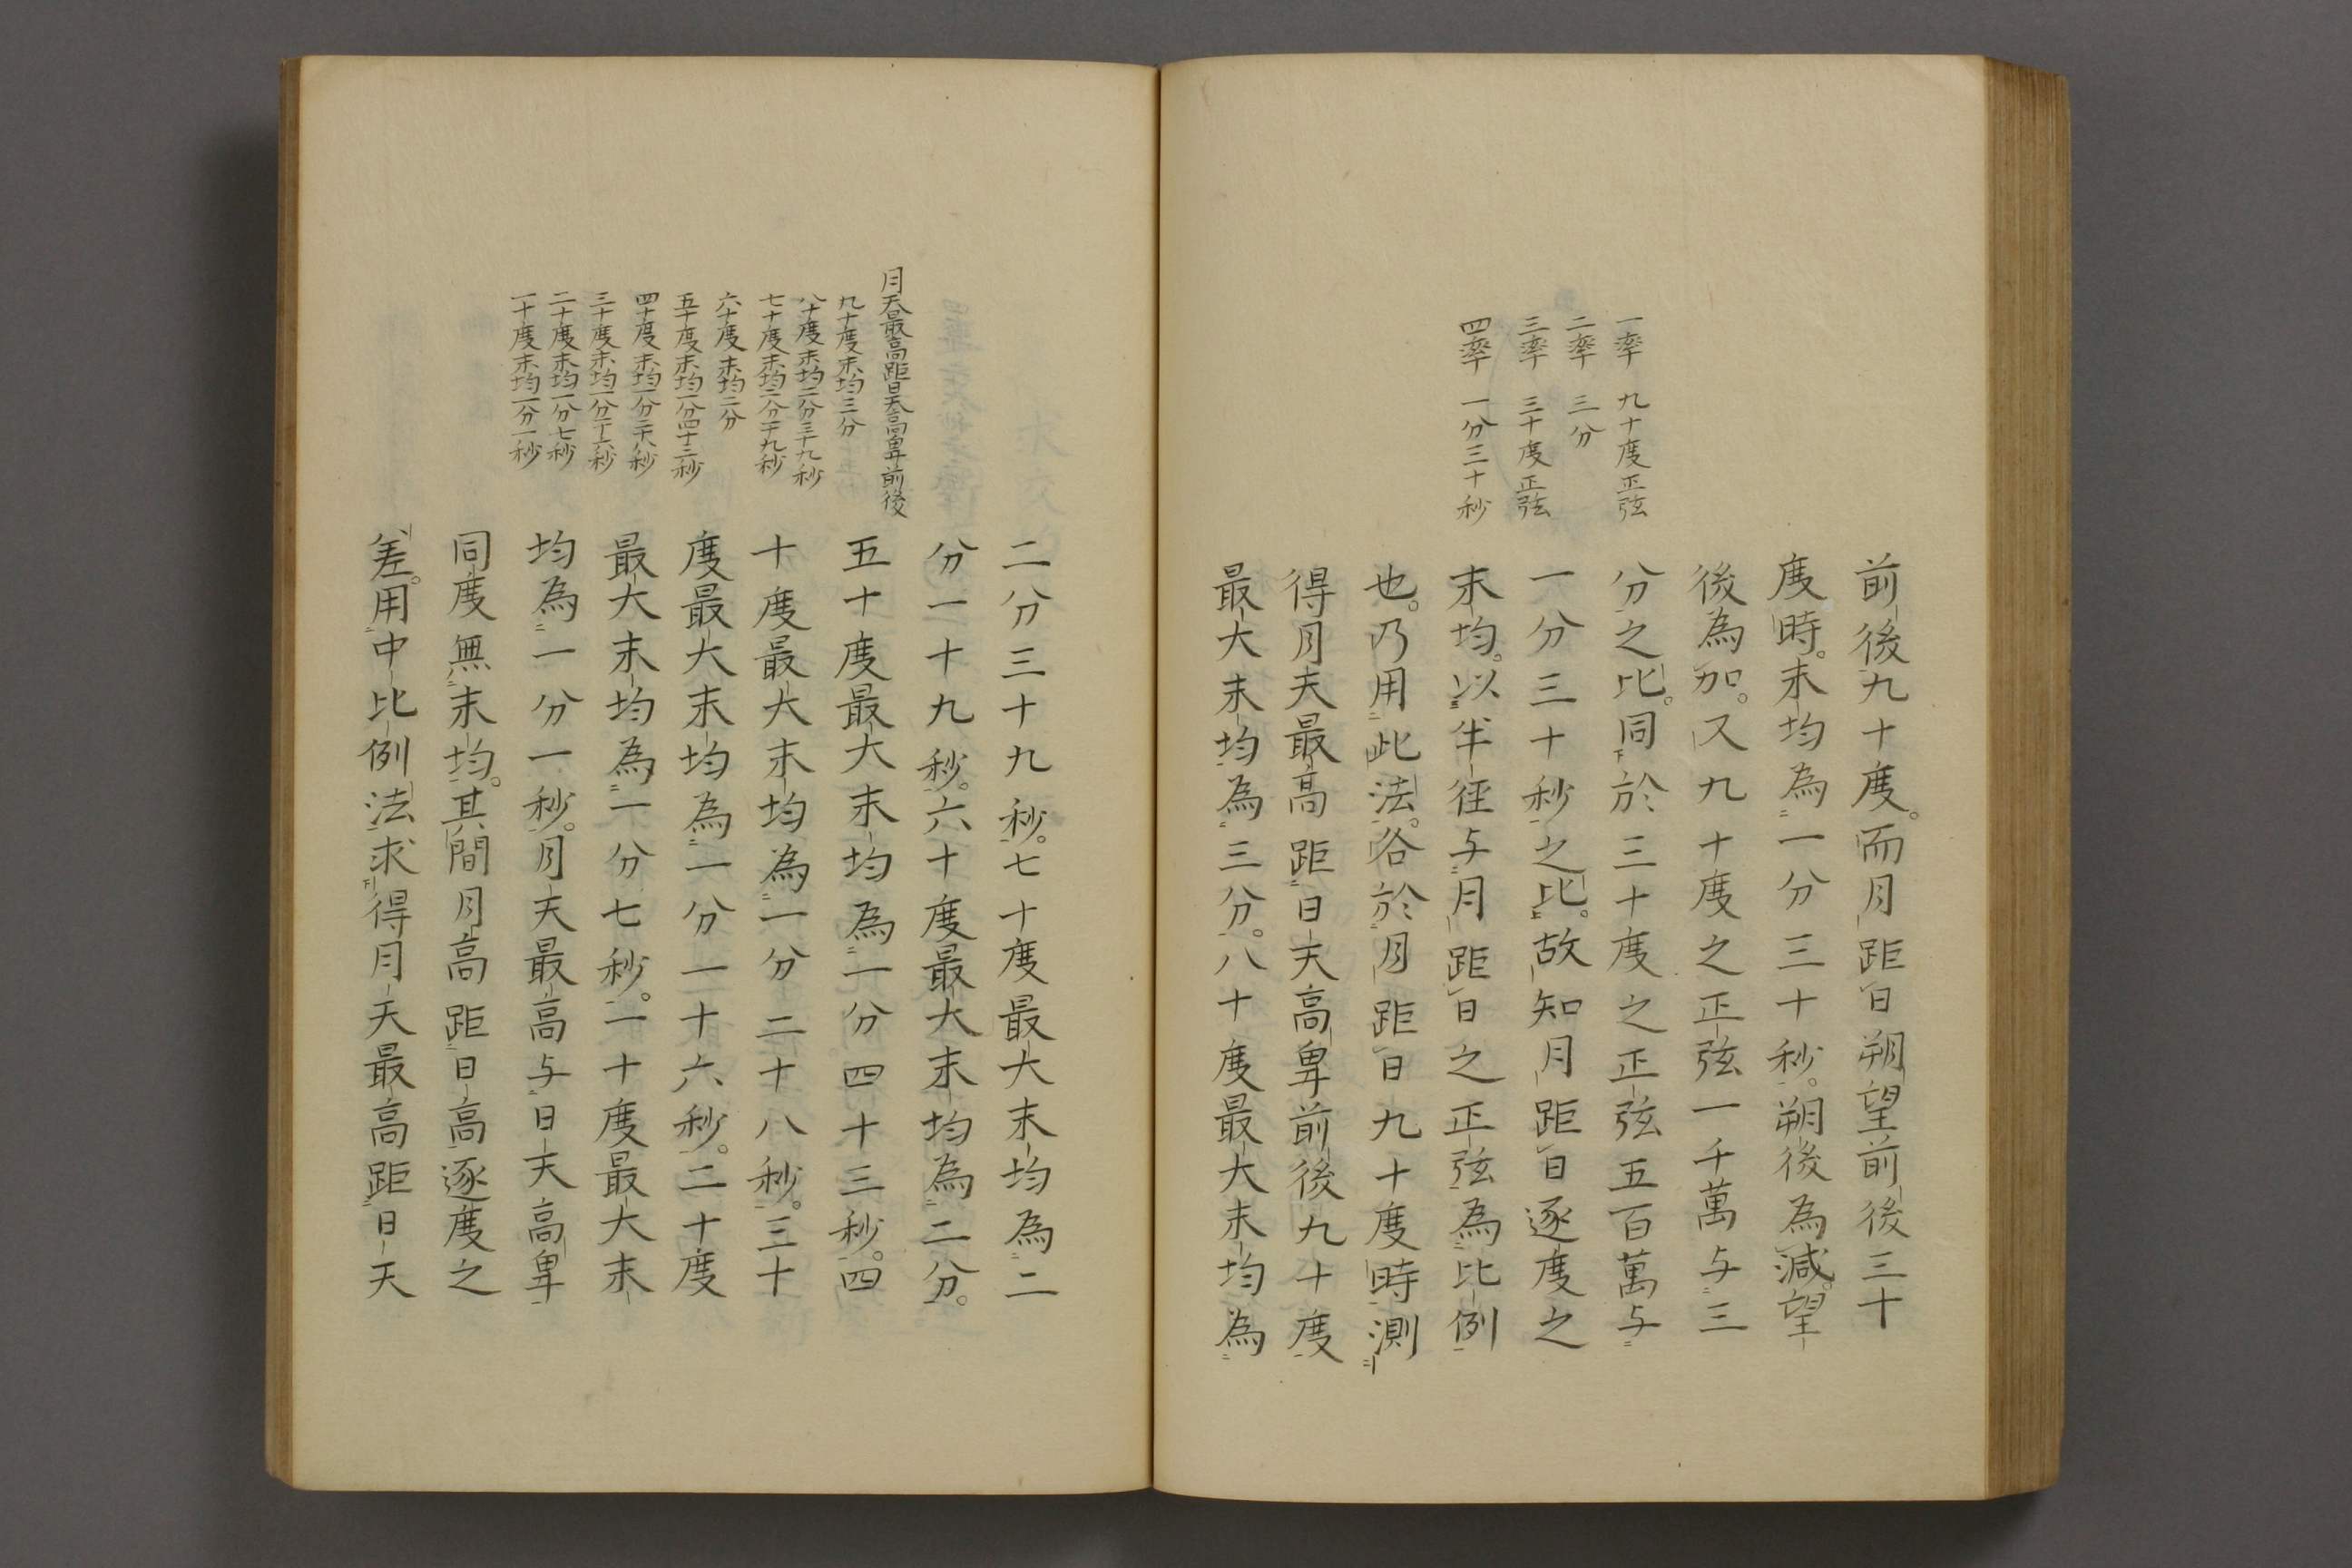 一率　九十度正弦
二率　三分
三率　三十度正弦
四率　一分三十秒
前後九十度。而月距日朔望前後三十
度時。末均為一分三十秒。朔後為減。望
後為加。又九十度之正弦一千萬与三
分之比。同於三十度之正弦五百萬与
一分三十秒之比。故知月距日逐度之
末均。以半径与月距日之正弦為比例
也。乃用此法。各於月距日九十度時測
得月天最高距日天高卑前後九十度
最大末均為三分。八十度最大末均為
月天最高距日天高卑前後
九十度末均三分
八十度末均二分三十九秒
七十度末均二分一十九秒
六十度末均二分
五十度末均一分四十三秒
四十度末均一分二十八秒
三十度末均一分一十六秒
二十度末均一分七秒
一十度末均一分一秒
二分三十九秒。七十度最大末均為二
分一十九秒。六十度最大末均為二分。
五十度最大末均為一分四十三秒。四
十度最大末均為一分二十八秒。三十
度最大末均為一分一十六秒。二十度
最大末均為一分七秒。一十度最大末
均為一分一秒。月天最高与日天高卑
同度無末均。其間月高距日高逐度之
差。用中比例法求得月天最高距日天